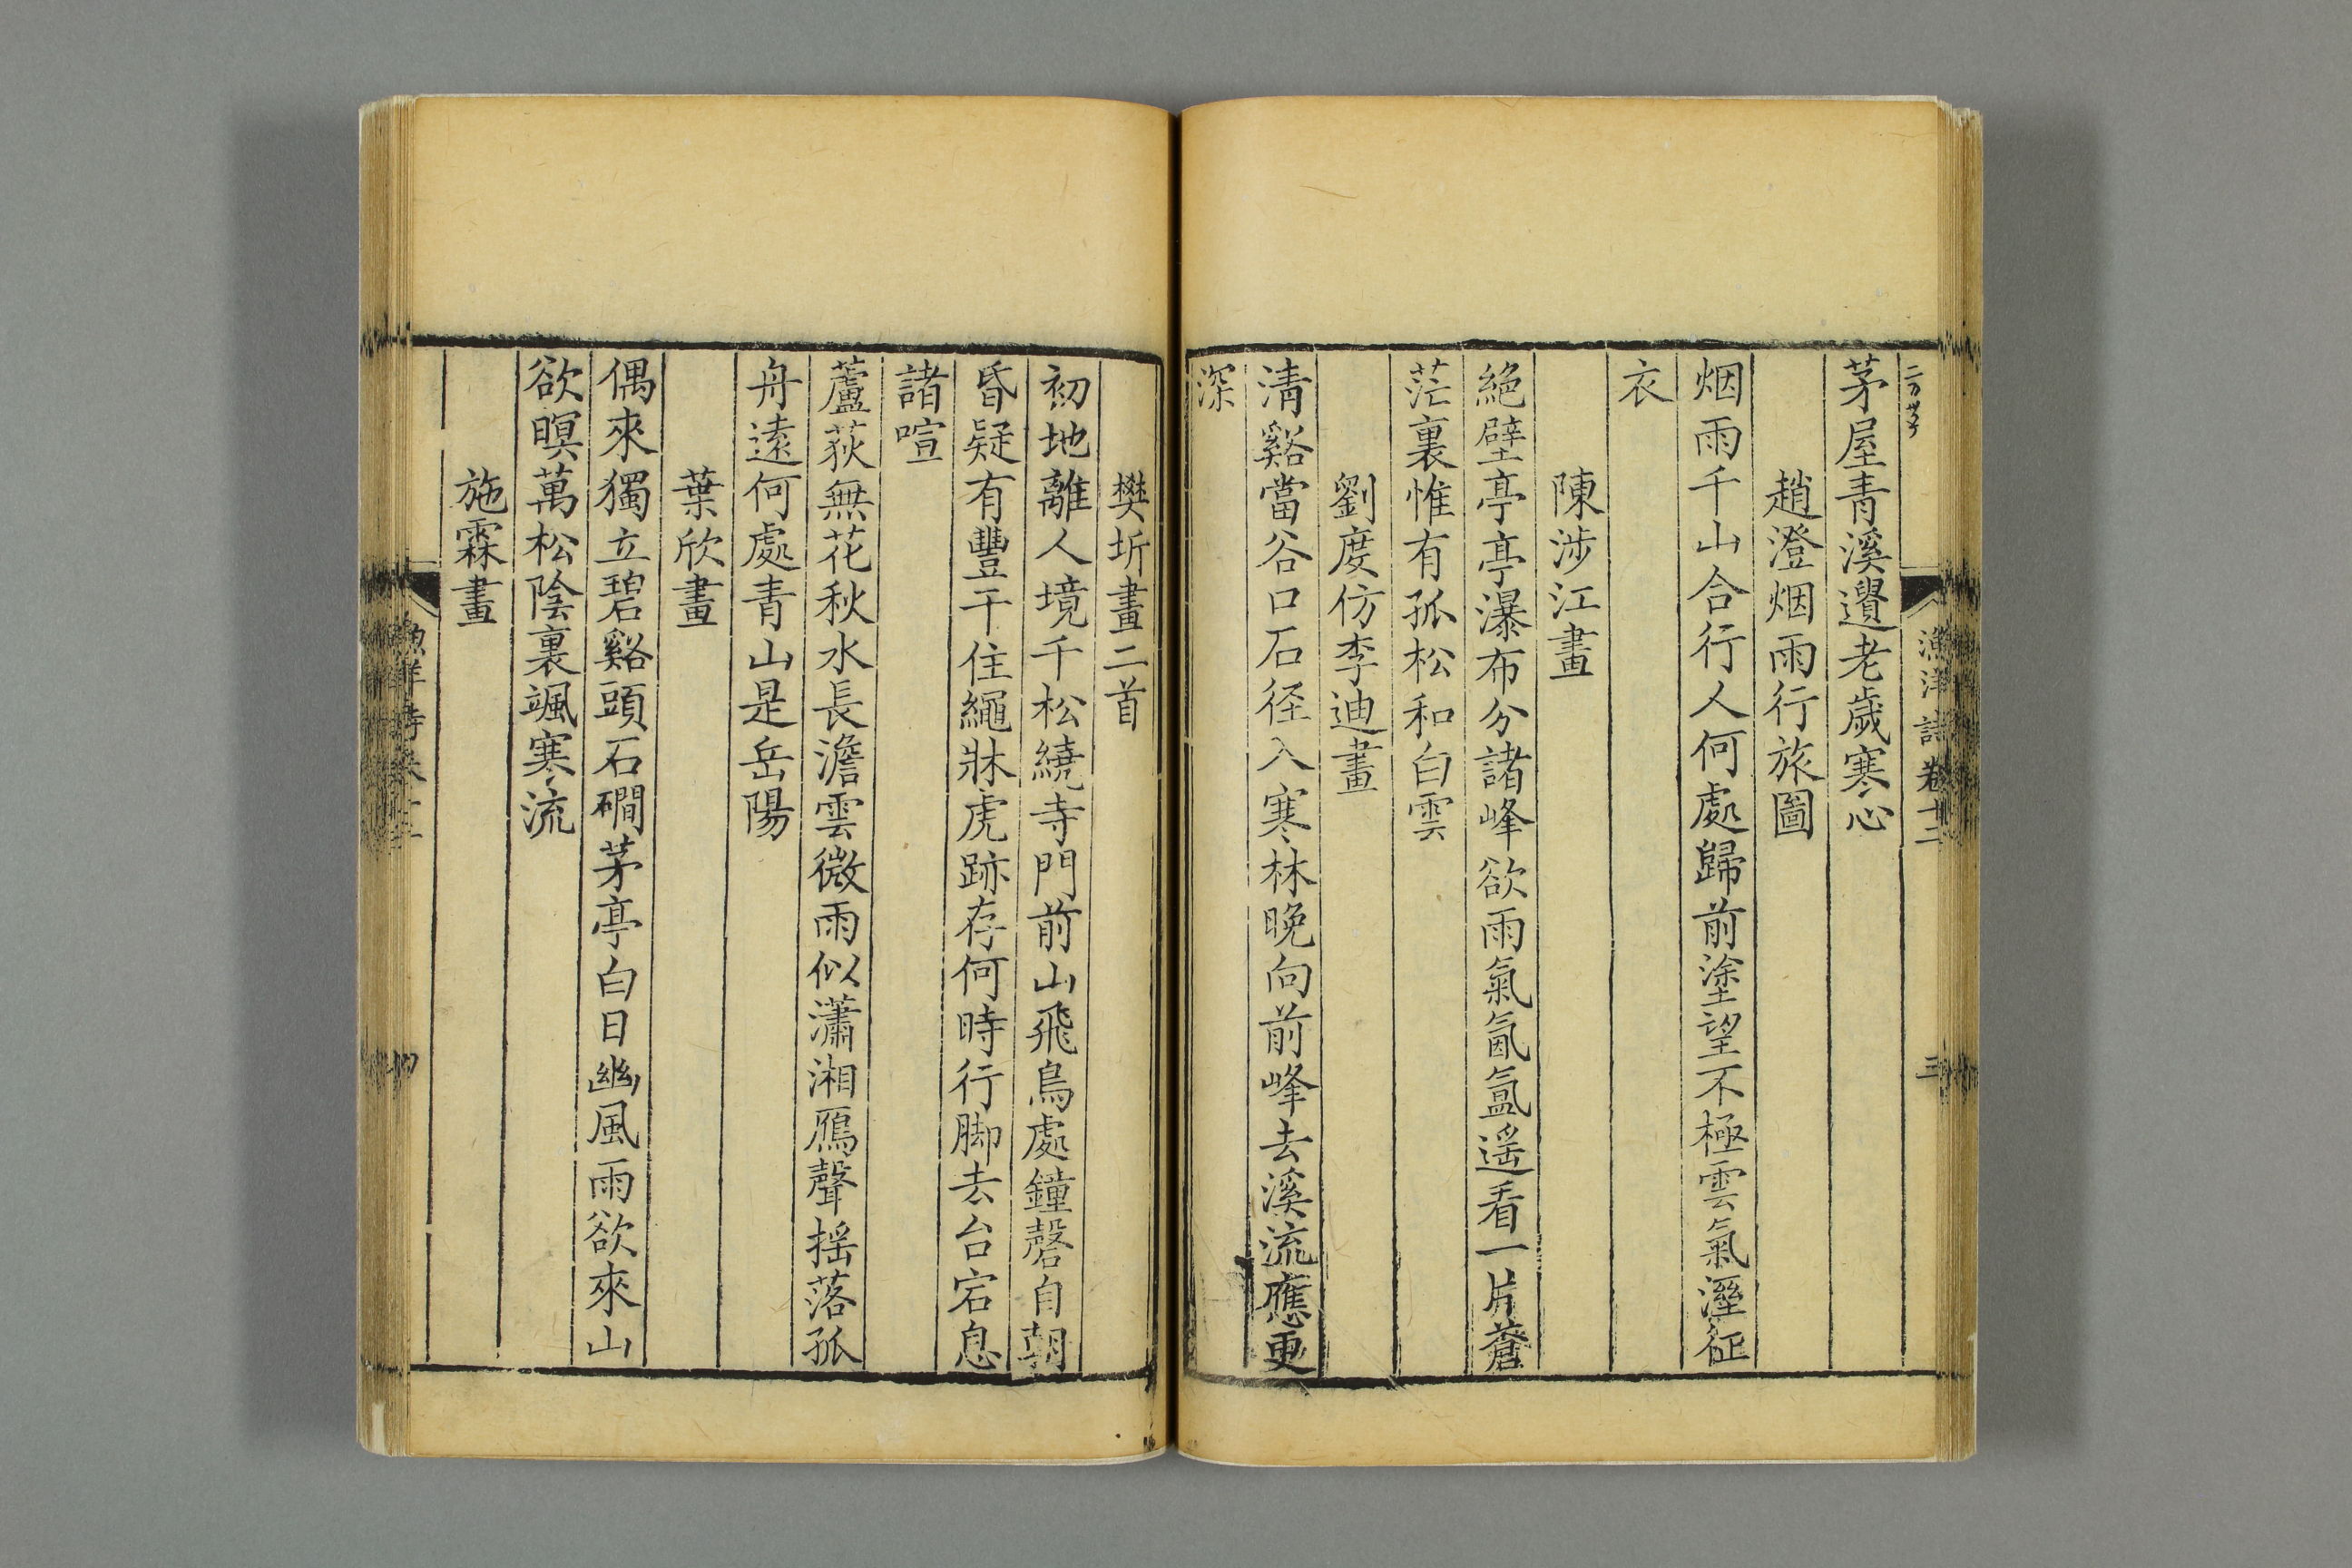 漁洋詩卷十二
三
茅屋青溪邊老歲寒心
趙澄烟雨行旅圖
烟雨千山合行人何處歸前塗望不極雲氣溼征
衣
陳涉江畫
絕壁亭亭瀑布分諸峰欲雨氣氤氳遥看一片蒼
茫裏惟有孤松和白雲
劉度仿李迪畫
清谿當谷口石径入寒林晚向前峰去溪流應更
深
樊圻畫二首
初地離人境千松繞寺門前山飛鳥處鐘磬自朝
昏疑有豐干住繩牀虎跡存何時行脚去台宕息
諸喧
蘆荻無花秋水長澹雲微雨似瀟湘鴈聲摇落孤
舟遠何處青山是岳陽
葉欣畫
偶來獨立碧谿頭石磵茅亭白日幽風雨欲來山
欲暝萬松陰裏颯寒流
施霖畫
四